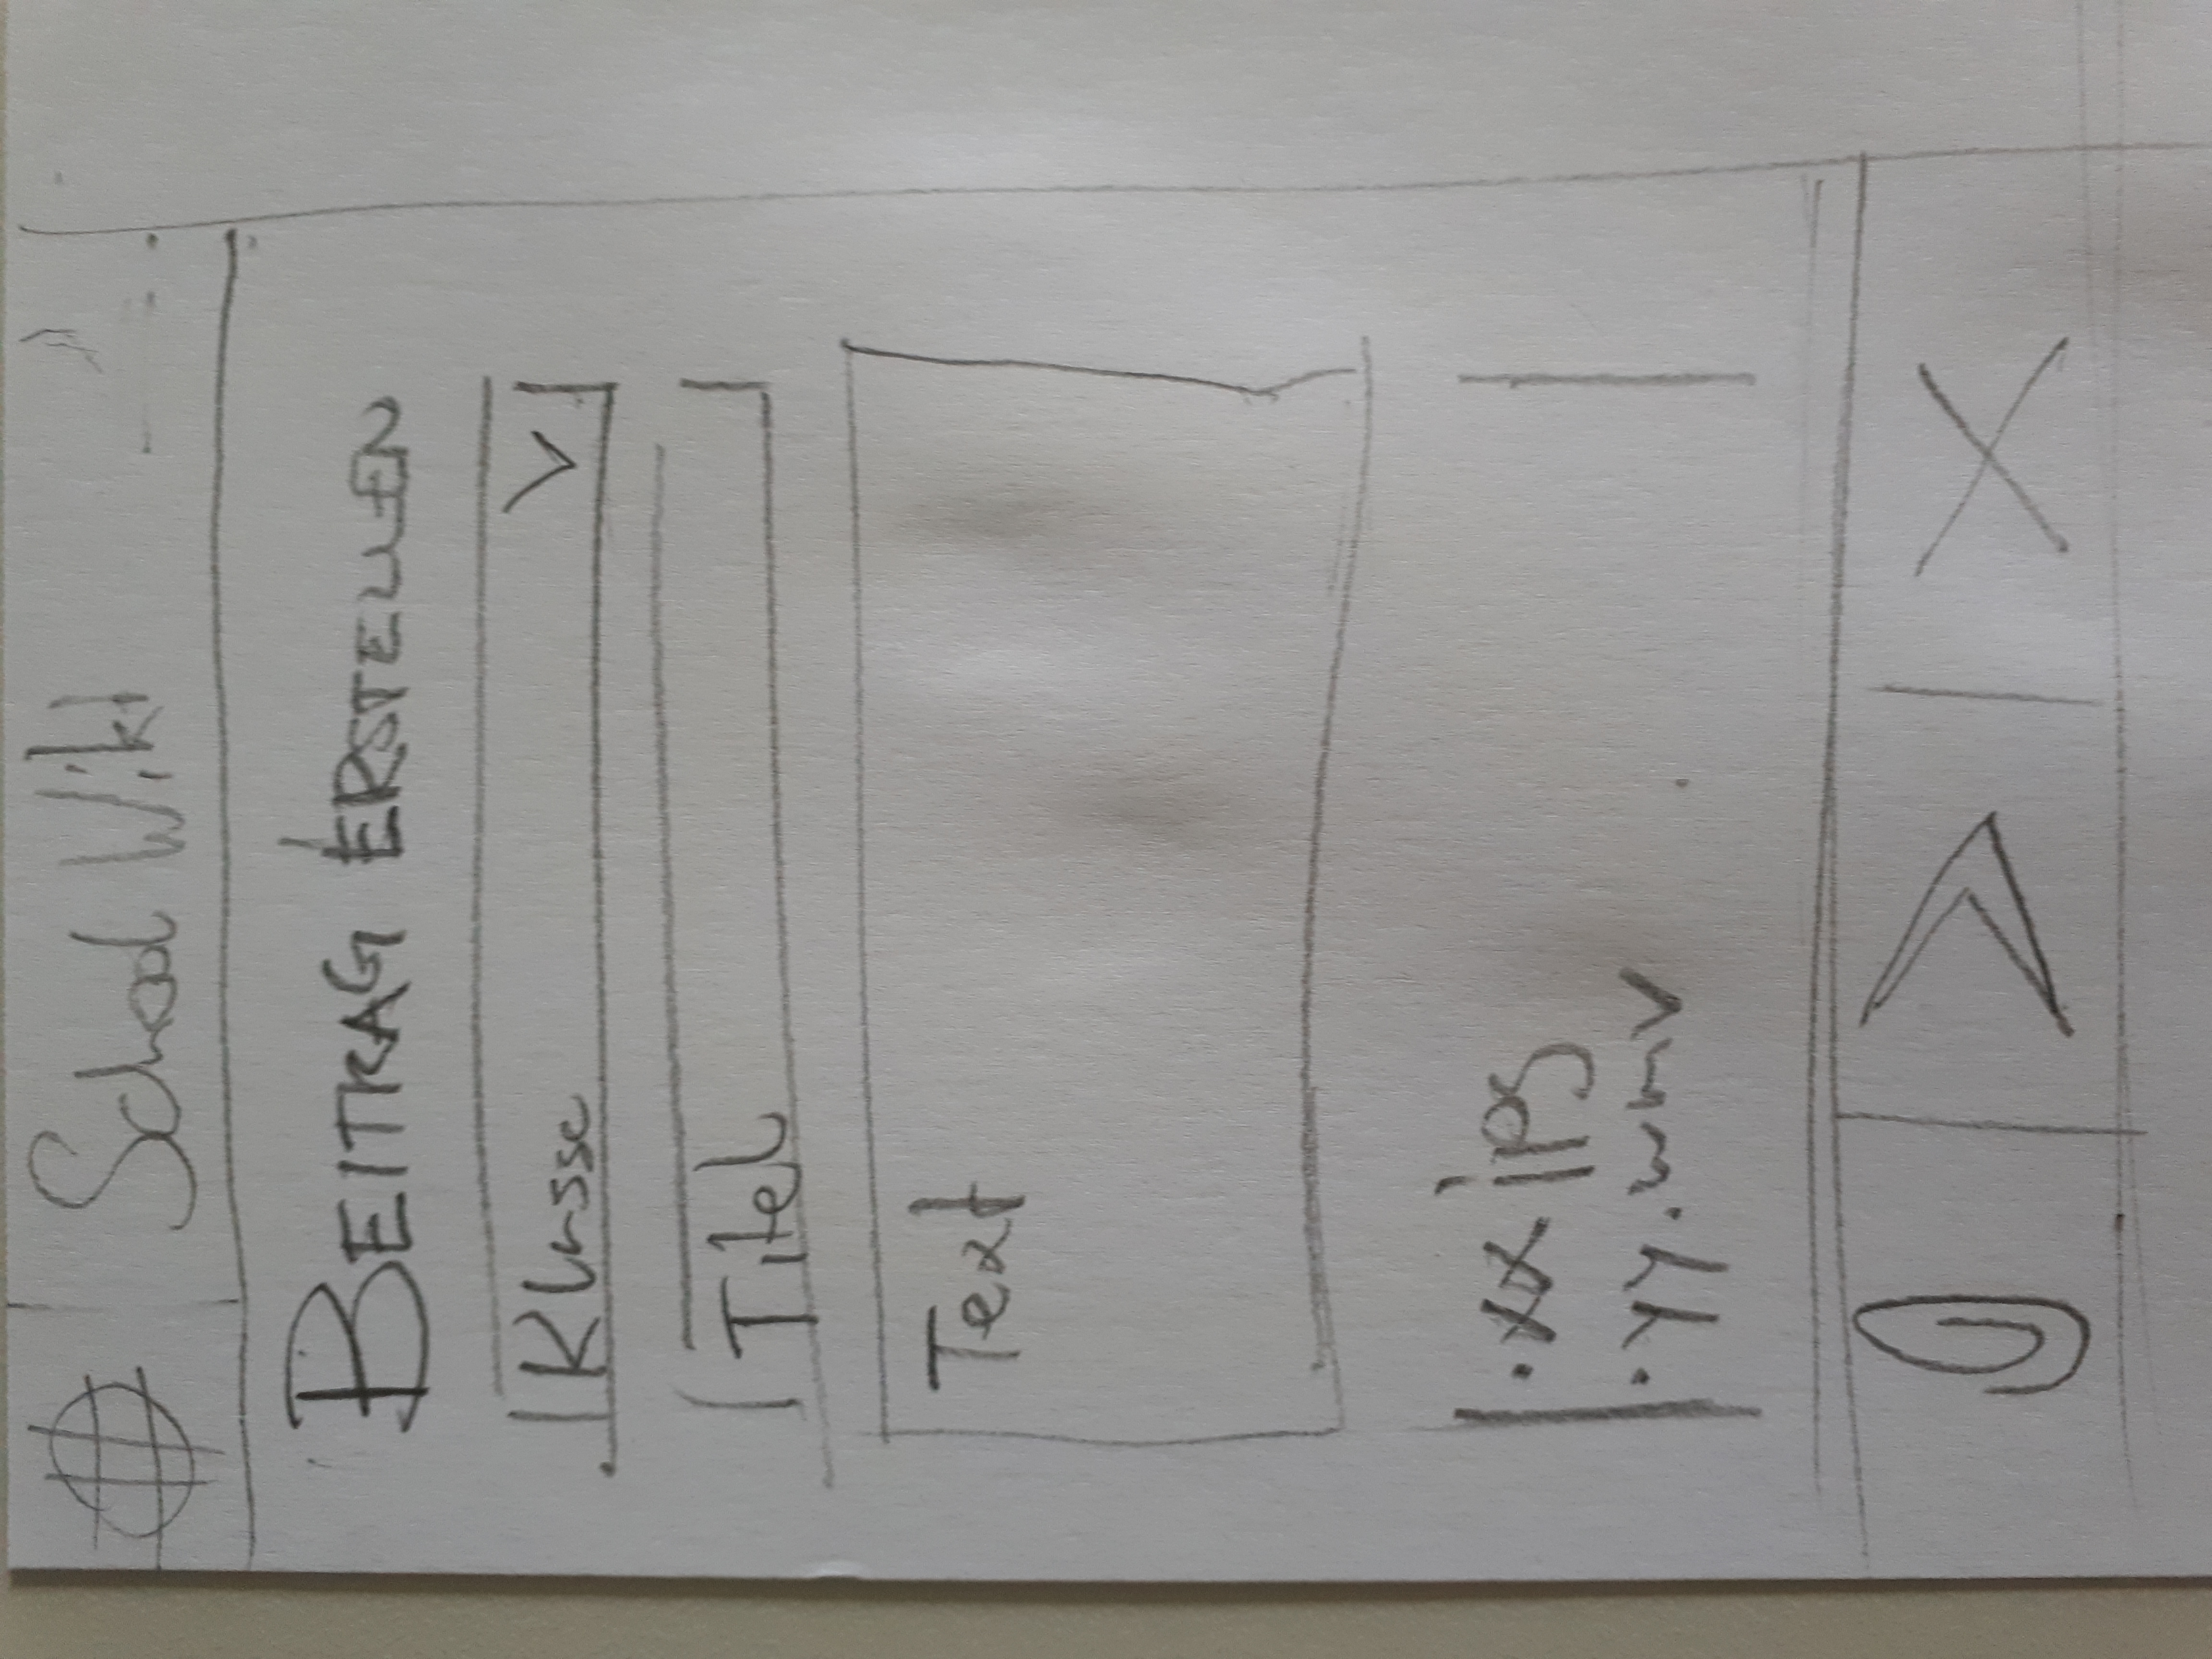 School Wiki
BEITRAG ERSTELLEN
Klasse
Titel
Text
· xx jpg
· yy.wmv